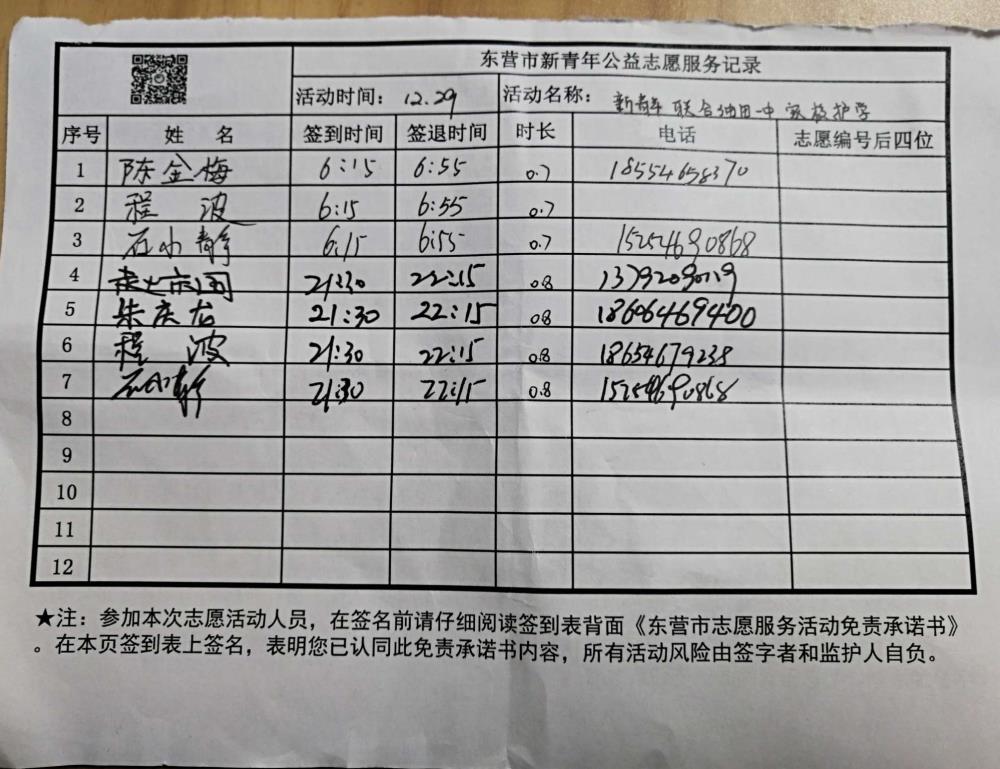 东营市新青年公益志愿服务记录
活动时间：12.29 活动名称：新青年联合油田一中家校护学
序号 姓 名 签到时间 签退时间 时长 电话 志愿编号后四位
1 陈金梅 6:15 6:55 0.7 18554658370
2 程 波 6:15 6:55 0.7
3 石小静 6:15 6:55 0.7 15254690868
4 21:30 22:15 0.8
5 朱庆龙 21:30 22:15 0.8 18606469400
6 程 波 21:30 22:15 0.8 18654679238
7 石小静 21:30 22:15 0.8 15254690868
8
9
10
11
12
★注：参加本次志愿活动人员，在签名前请仔细阅读签到表背面《东营市志愿服务活动免责承诺书》
。在本页签到表上签名，表明您已认同此免责承诺书内容，所有活动风险由签字者和监护人自负。